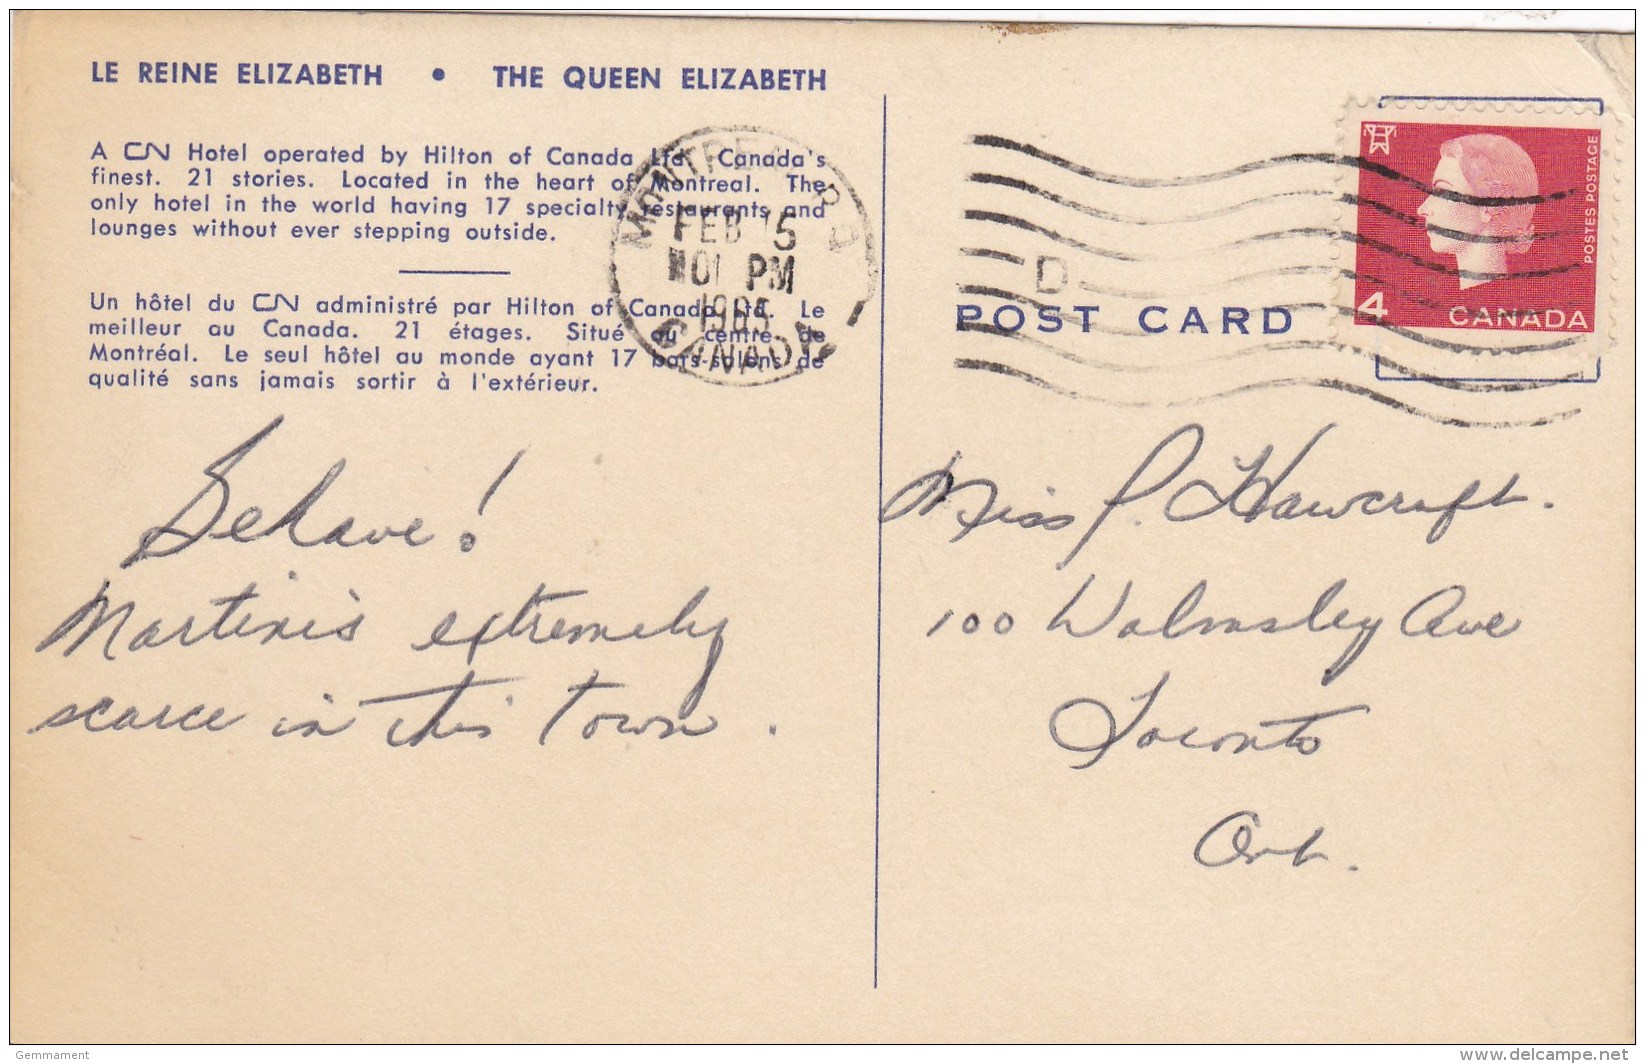 LE REINE ELIZABETH • THE QUEEN ELIZABETH
A CN Hotel operated by Hilton of Canada Ltd. Canada's
finest. 21 stories. Located in the heart of Montreal. The
only hotel in the world having 17 specialty restaurants and
lounges without ever stepping outside.
Un hôtel du CN administré par Hilton of Canada Ltd. Le
meilleur au Canada. 21 étages. Situé au centre de
Montréal. Le seul hôtel au monde ayant 17 bars-salons de
qualité sans jamais sortir à l'extérieur.
Behave!
Martinis extremely
scarce in this town.
MONTREAL P.Q.
FEB 15
PM
CANADA
D
POST CARD
POSTES POSTAGE
4 CANADA
Miss P. Hawcraft.
100 Walmsley Ave
Toronto
Ont.
Gemmament
www.delcampe.net